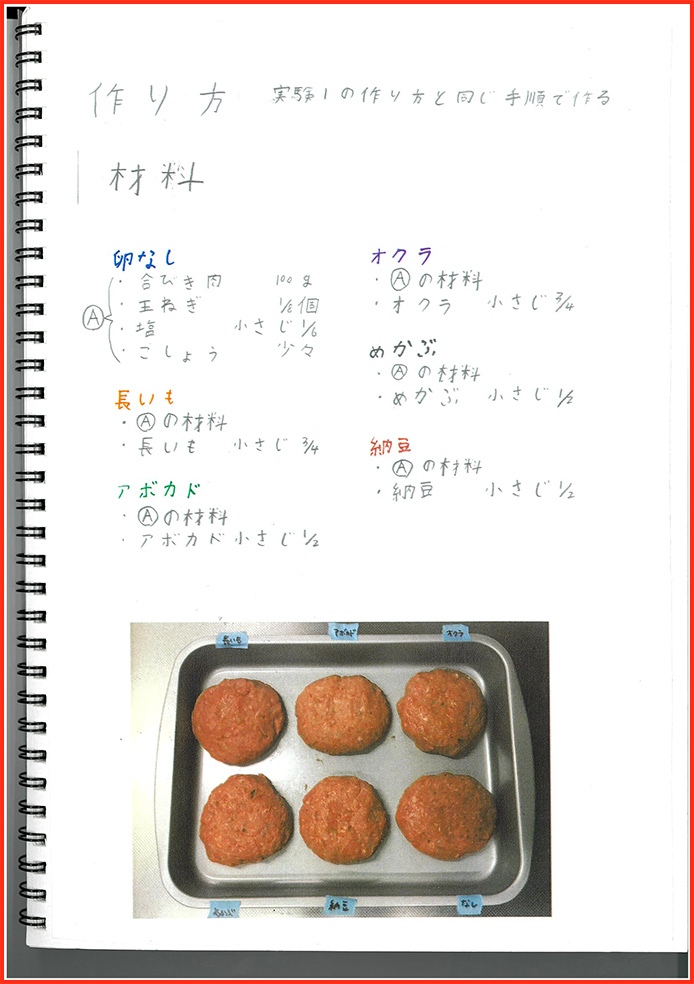 作り方 実験1の作り方と同じ手順で作る
材料
卵なし
Ⓐ
・合びき肉 100g
・玉ねぎ 1/8個
・塩 小さじ1/6
・こしょう 少々
長いも
・Ⓐの材料
・長いも 小さじ3/4
アボカド
・Ⓐの材料
・アボカド 小さじ1/2
オクラ
・Ⓐの材料
・オクラ 小さじ3/4
めかぶ
・Ⓐの材料
・めかぶ 小さじ1/2
納豆
・Ⓐの材料
・納豆 小さじ1/2
長いも アボカド オクラ
めかぶ 納豆 なし